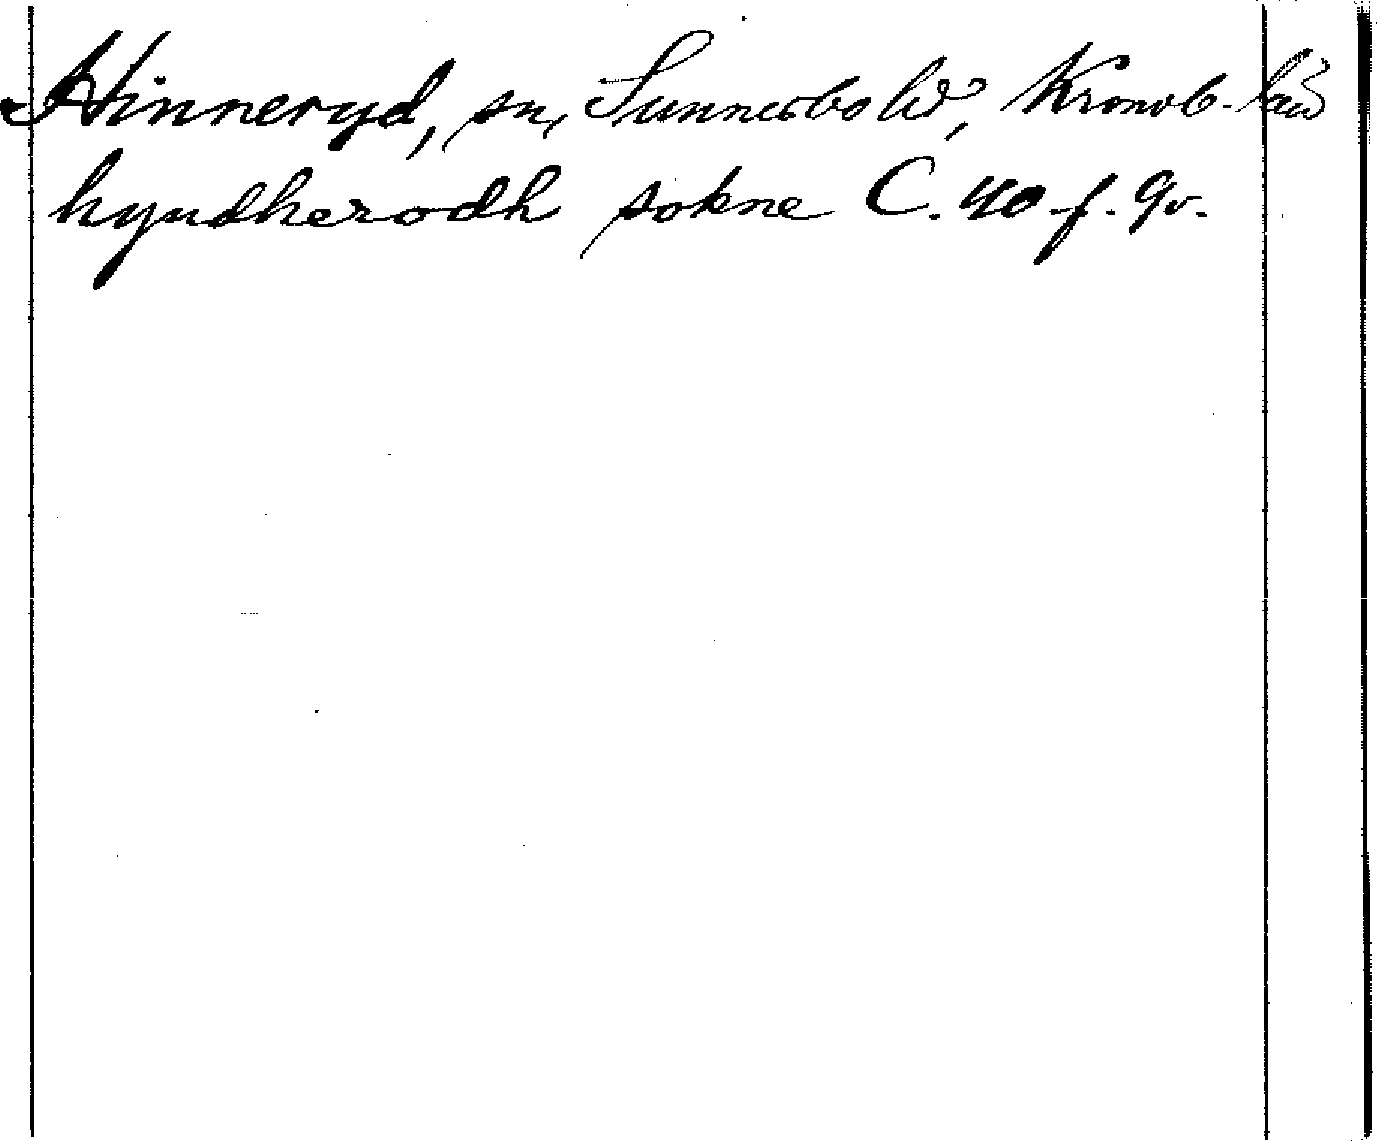 Hinneryd, sn, Sunnerbo hd, Kronob. län
hyndherodh sokne C. 40 f. 9v.